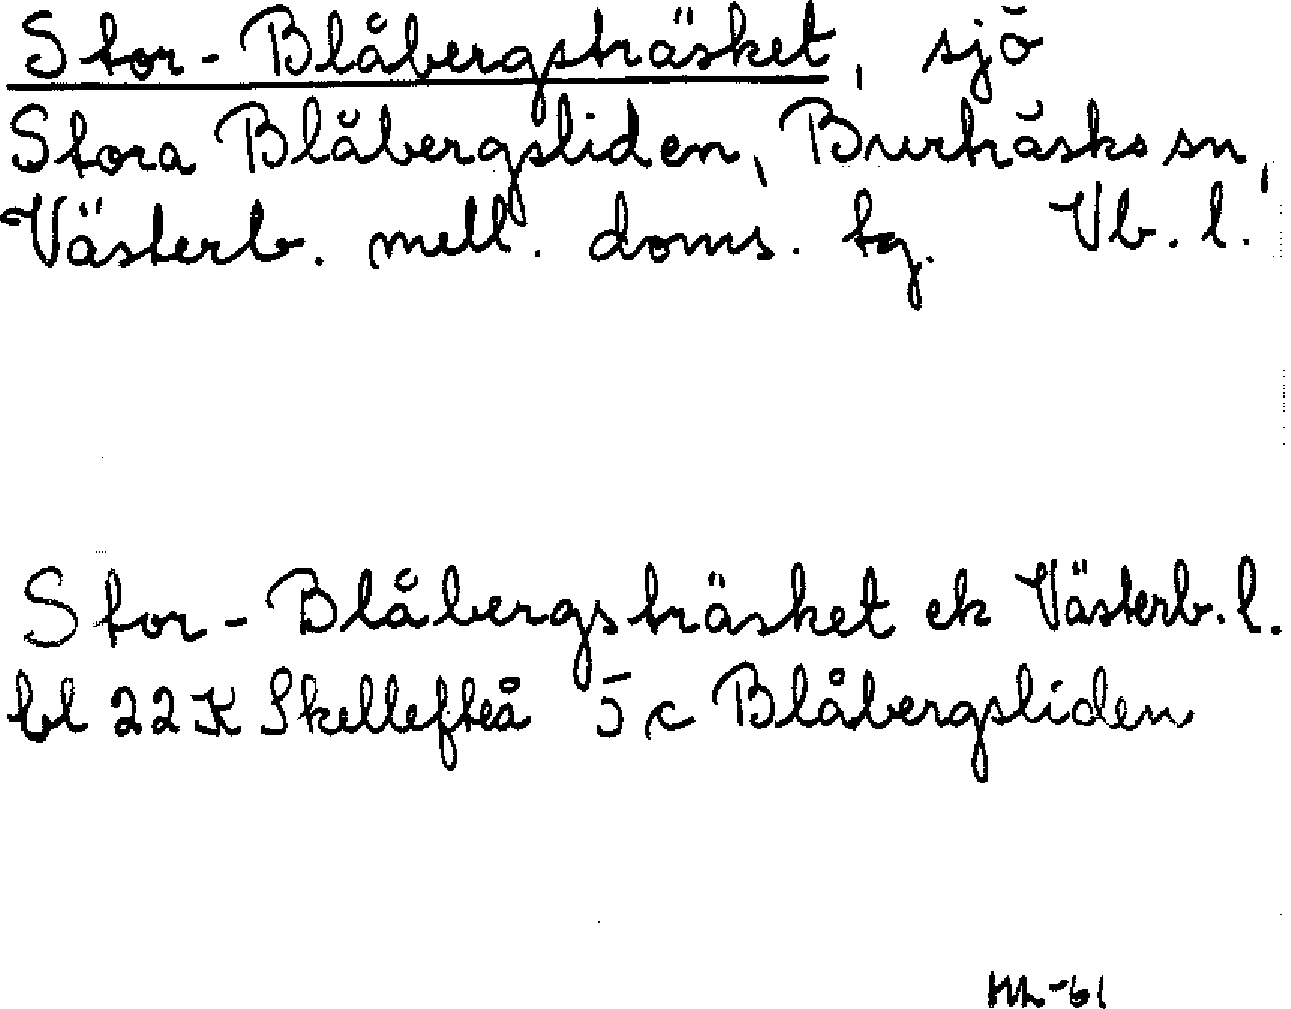 Stor-Blåbergsträsket, sjö
Stora Blåbergsliden, Burträsks sn,
Västerb. mell. doms. tg. Vb. l.
Stor-Blåbergsträsket ek Västerb. l.
bl 22 K Skellefteå 5 c Blåbergsliden
-61